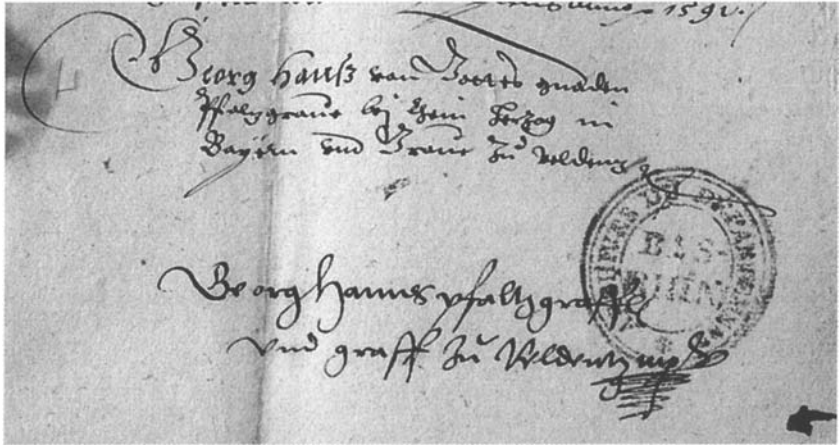 1591.
Georg Hanß von Gottes gnaden
Pfaltzgraue bej Rhein Hertzog in
Bayern vnd Graue Zu Veldentz
BAS-
RHIN
Georg Hannes pfaltzgraff
vnd graff Zu Veldentz mp